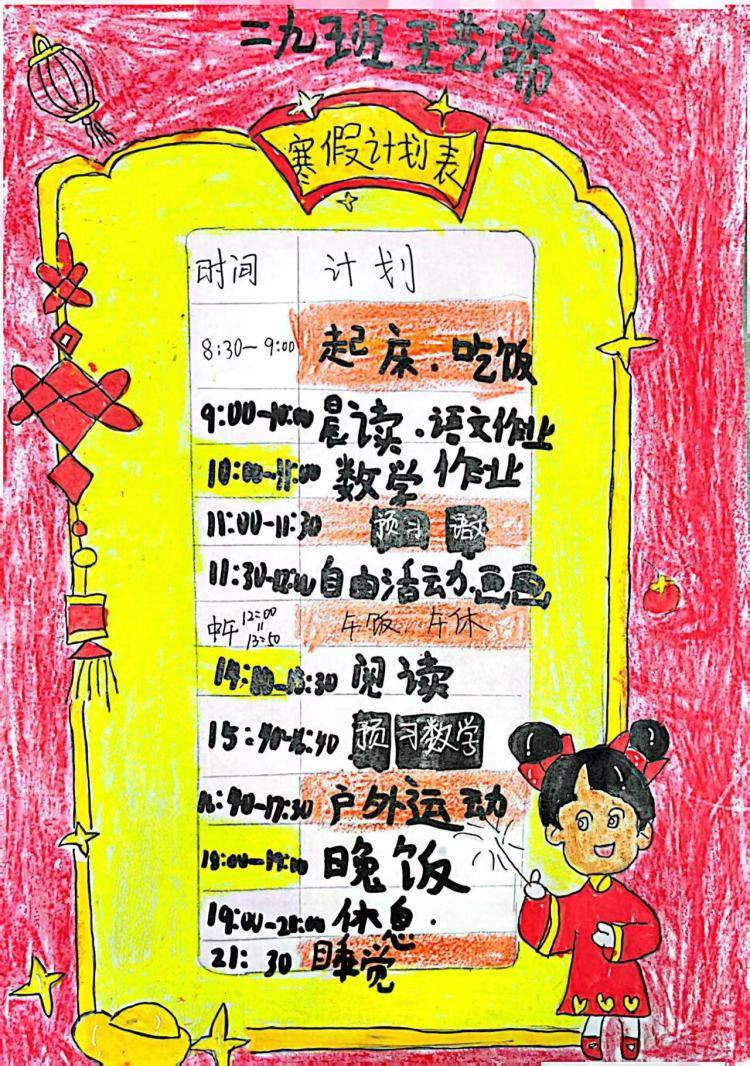 二九班 王艺稀
寒假计划表
时间 计划
8:30-9:00 起床.吃饭
9:00-10:00 晨读.语文作业
10:00-11:00 数学作业
11:00-11:30 预习 语文
11:30-12:00 自由活动.画画
中午 12:00 = 13:50 午饭.午休
阅读
15:40-16:40 预习数学
16:40-17:30 户外运动
18:00-19:00 晚饭
19:00-20:00 休息.
21:30 睡觉